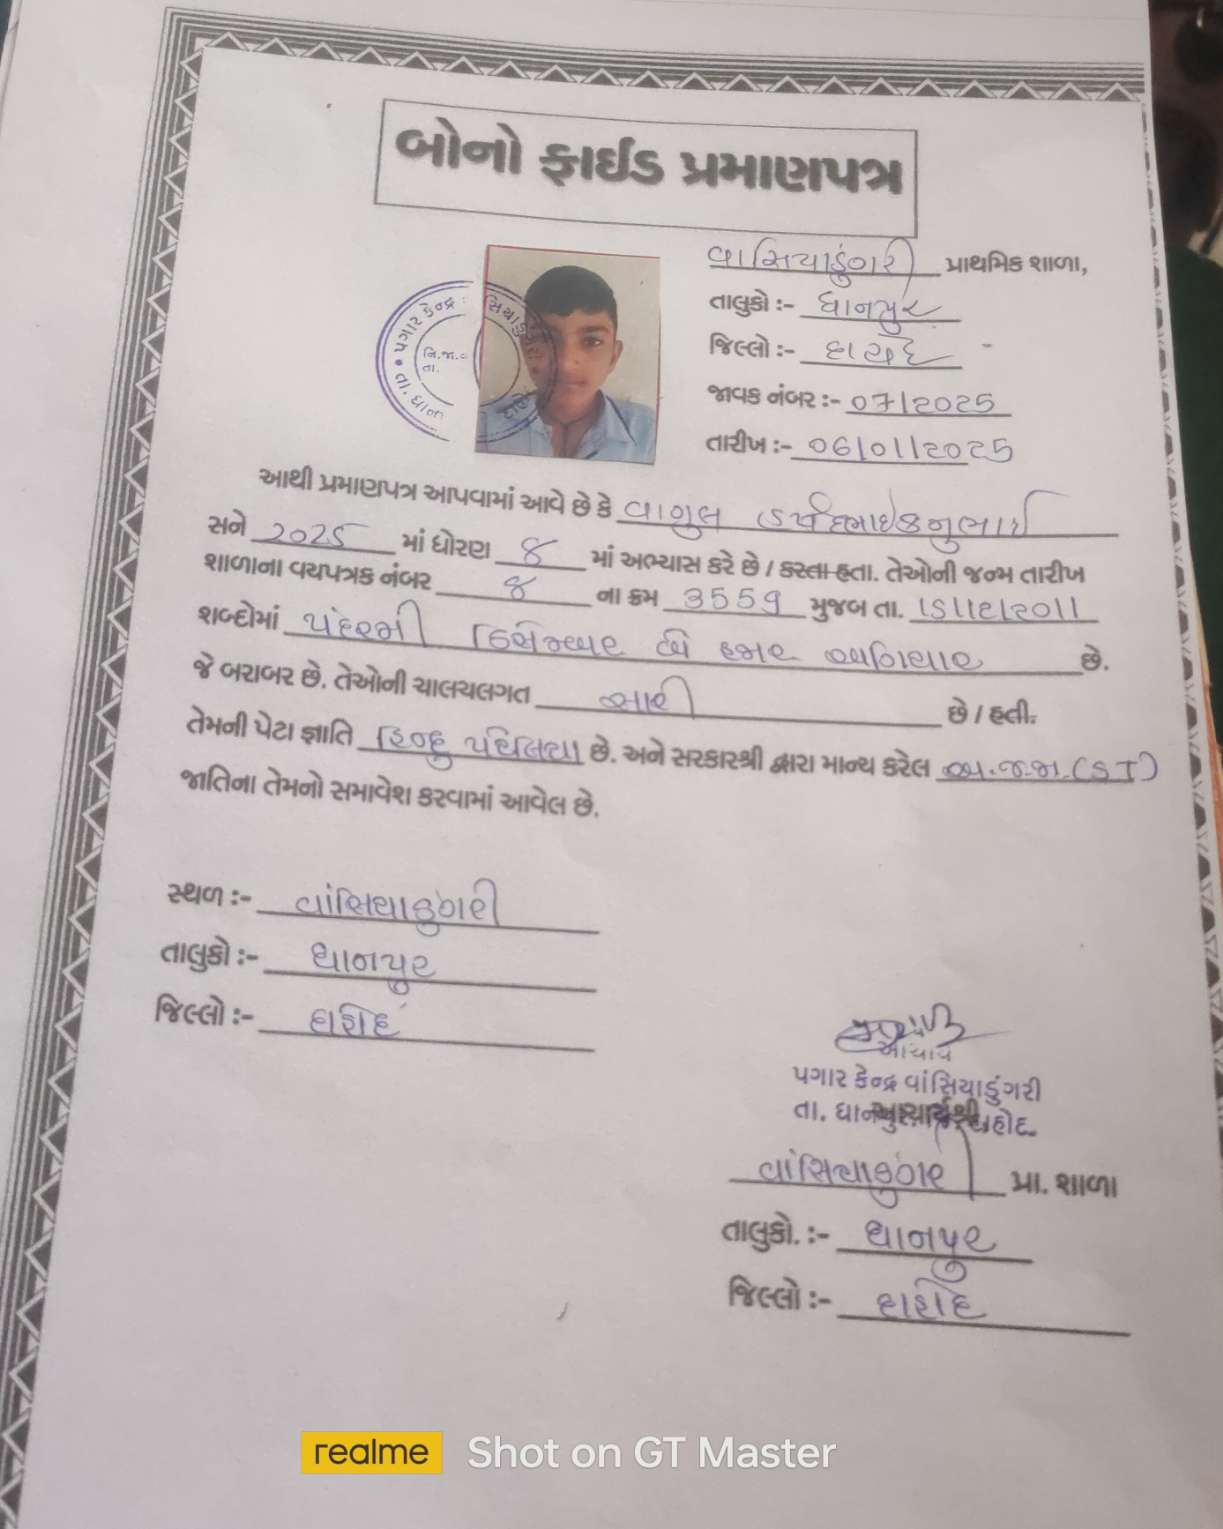 બોનો ફાઈડ પ્રમાણપત્ર
વાસિયાડુંગરી પ્રાથમિક શાળા,
તાલુકો :- ધાનપુર
જિલ્લો :- દાહોદ
જાવક નંબર :- 07/2025
તારીખ :- 06/01/2025
પગાર કેન્દ્ર
તા. ધાન
આથી પ્રમાણપત્ર આપવામાં આવે છે કે કનુભાઈ
સને 2025 માં ધોરણ 8 માં અભ્યાસ કરે છે / કરતા હતા. તેઓની જન્મ તારીખ
શાળાના વયપત્રક નંબર 8 ના ક્રમ 3559 મુજબ તા. 15/12/2011
શબ્દોમાં પંદરમી ડિસેમ્બર બે હજાર અગિયાર છે.
જે બરાબર છે. તેઓની ચાલચલગત સારી છે / હતી.
તેમની પેટા જ્ઞાતિ હિન્દુ પટેલિયા છે. અને સરકારશ્રી દ્વારા માન્ય કરેલ અ.જ.જા. (ST)
જાતિના તેમનો સમાવેશ કરવામાં આવેલ છે.
સ્થળ :- વાંસિયાડુંગરી
તાલુકો :- ધાનપુર
જિલ્લો :- દાહોદ
આચાર્ય
પગાર કેન્દ્ર વાંસિયાડુંગરી
આચાર્યશ્રી
તા. ધાનપુર દાહોદ.
વાંસિયાડુંગરી પ્રા. શાળા
તાલુકો. :- ધાનપુર
જિલ્લો :- દાહોદ
realme Shot on GT Master